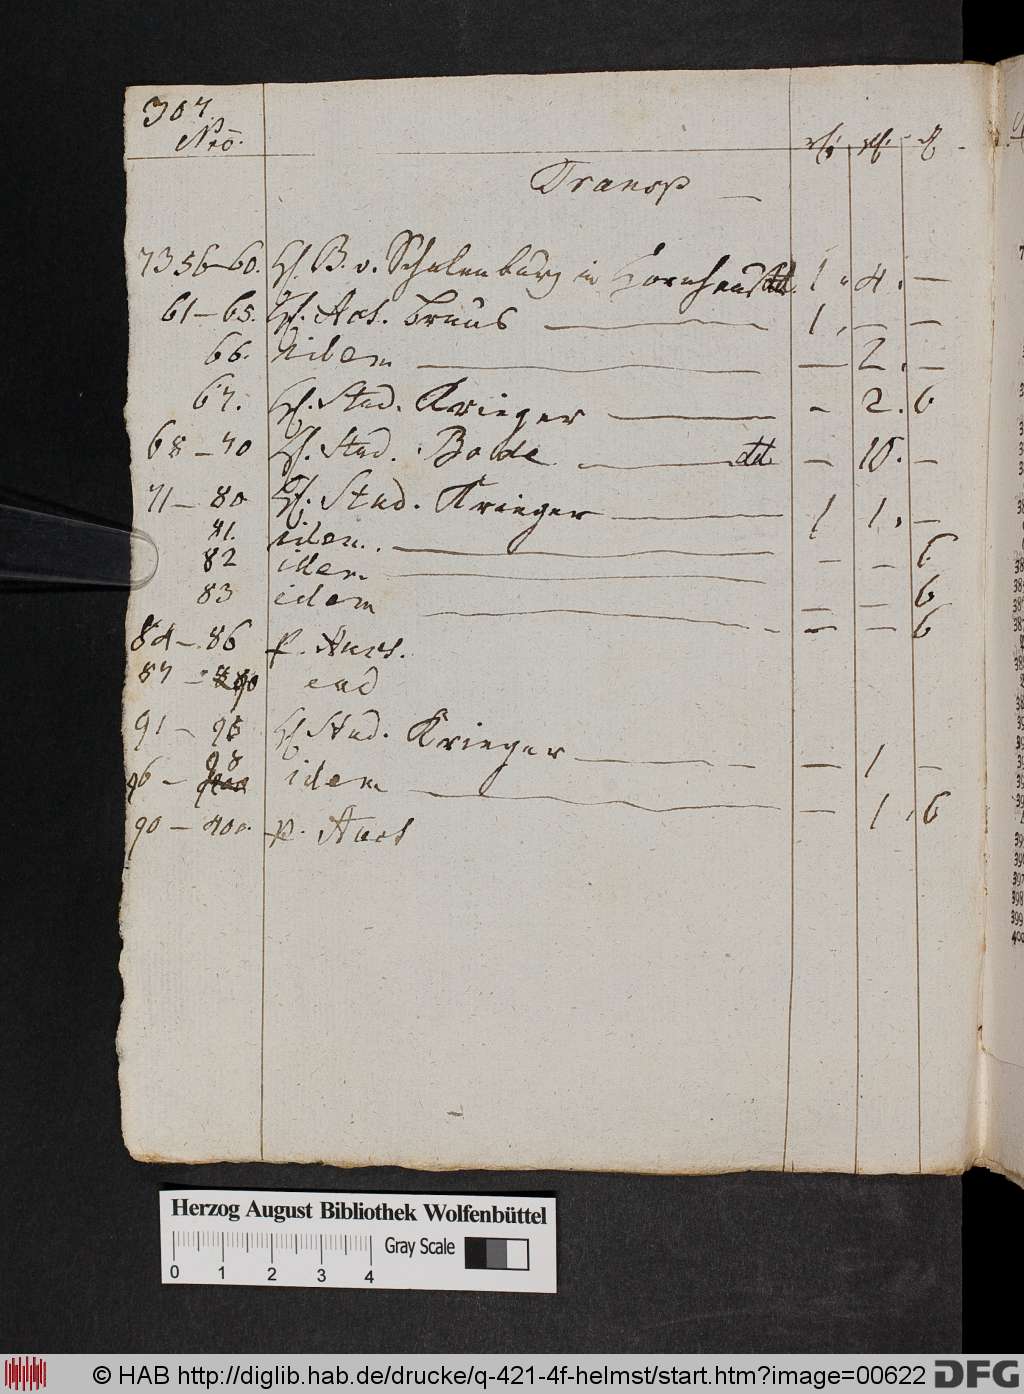 307.
Nro.
Transp
7356-60. H. B. v. Schulenburg in Hornhausen dd. 1. 4. —
61-65. H. Act. Bruns — 1. — —
66. idem — — 2. —
67. H. Stud. Krieger — - 2. 6
68-70 H. Stud. Bode — dd — 10. —
71-80 H. Stud. Krieger — 1 1. —
81. idem. — — — 6
82 idem — — — 6
83 idem — — — 6
84-86 p. Auct.
87-90 ead
91-95 H. Stud. Krieger — — 1 —
96-98 idem — — 1. 6
90-400. p. Auct
Herzog August Bibliothek Wolfenbüttel
Gray Scale
0 1 2 3 4
© HAB http://diglib.hab.de/drucke/q-421-4f-helmst/start.htm?image=00622 DFG